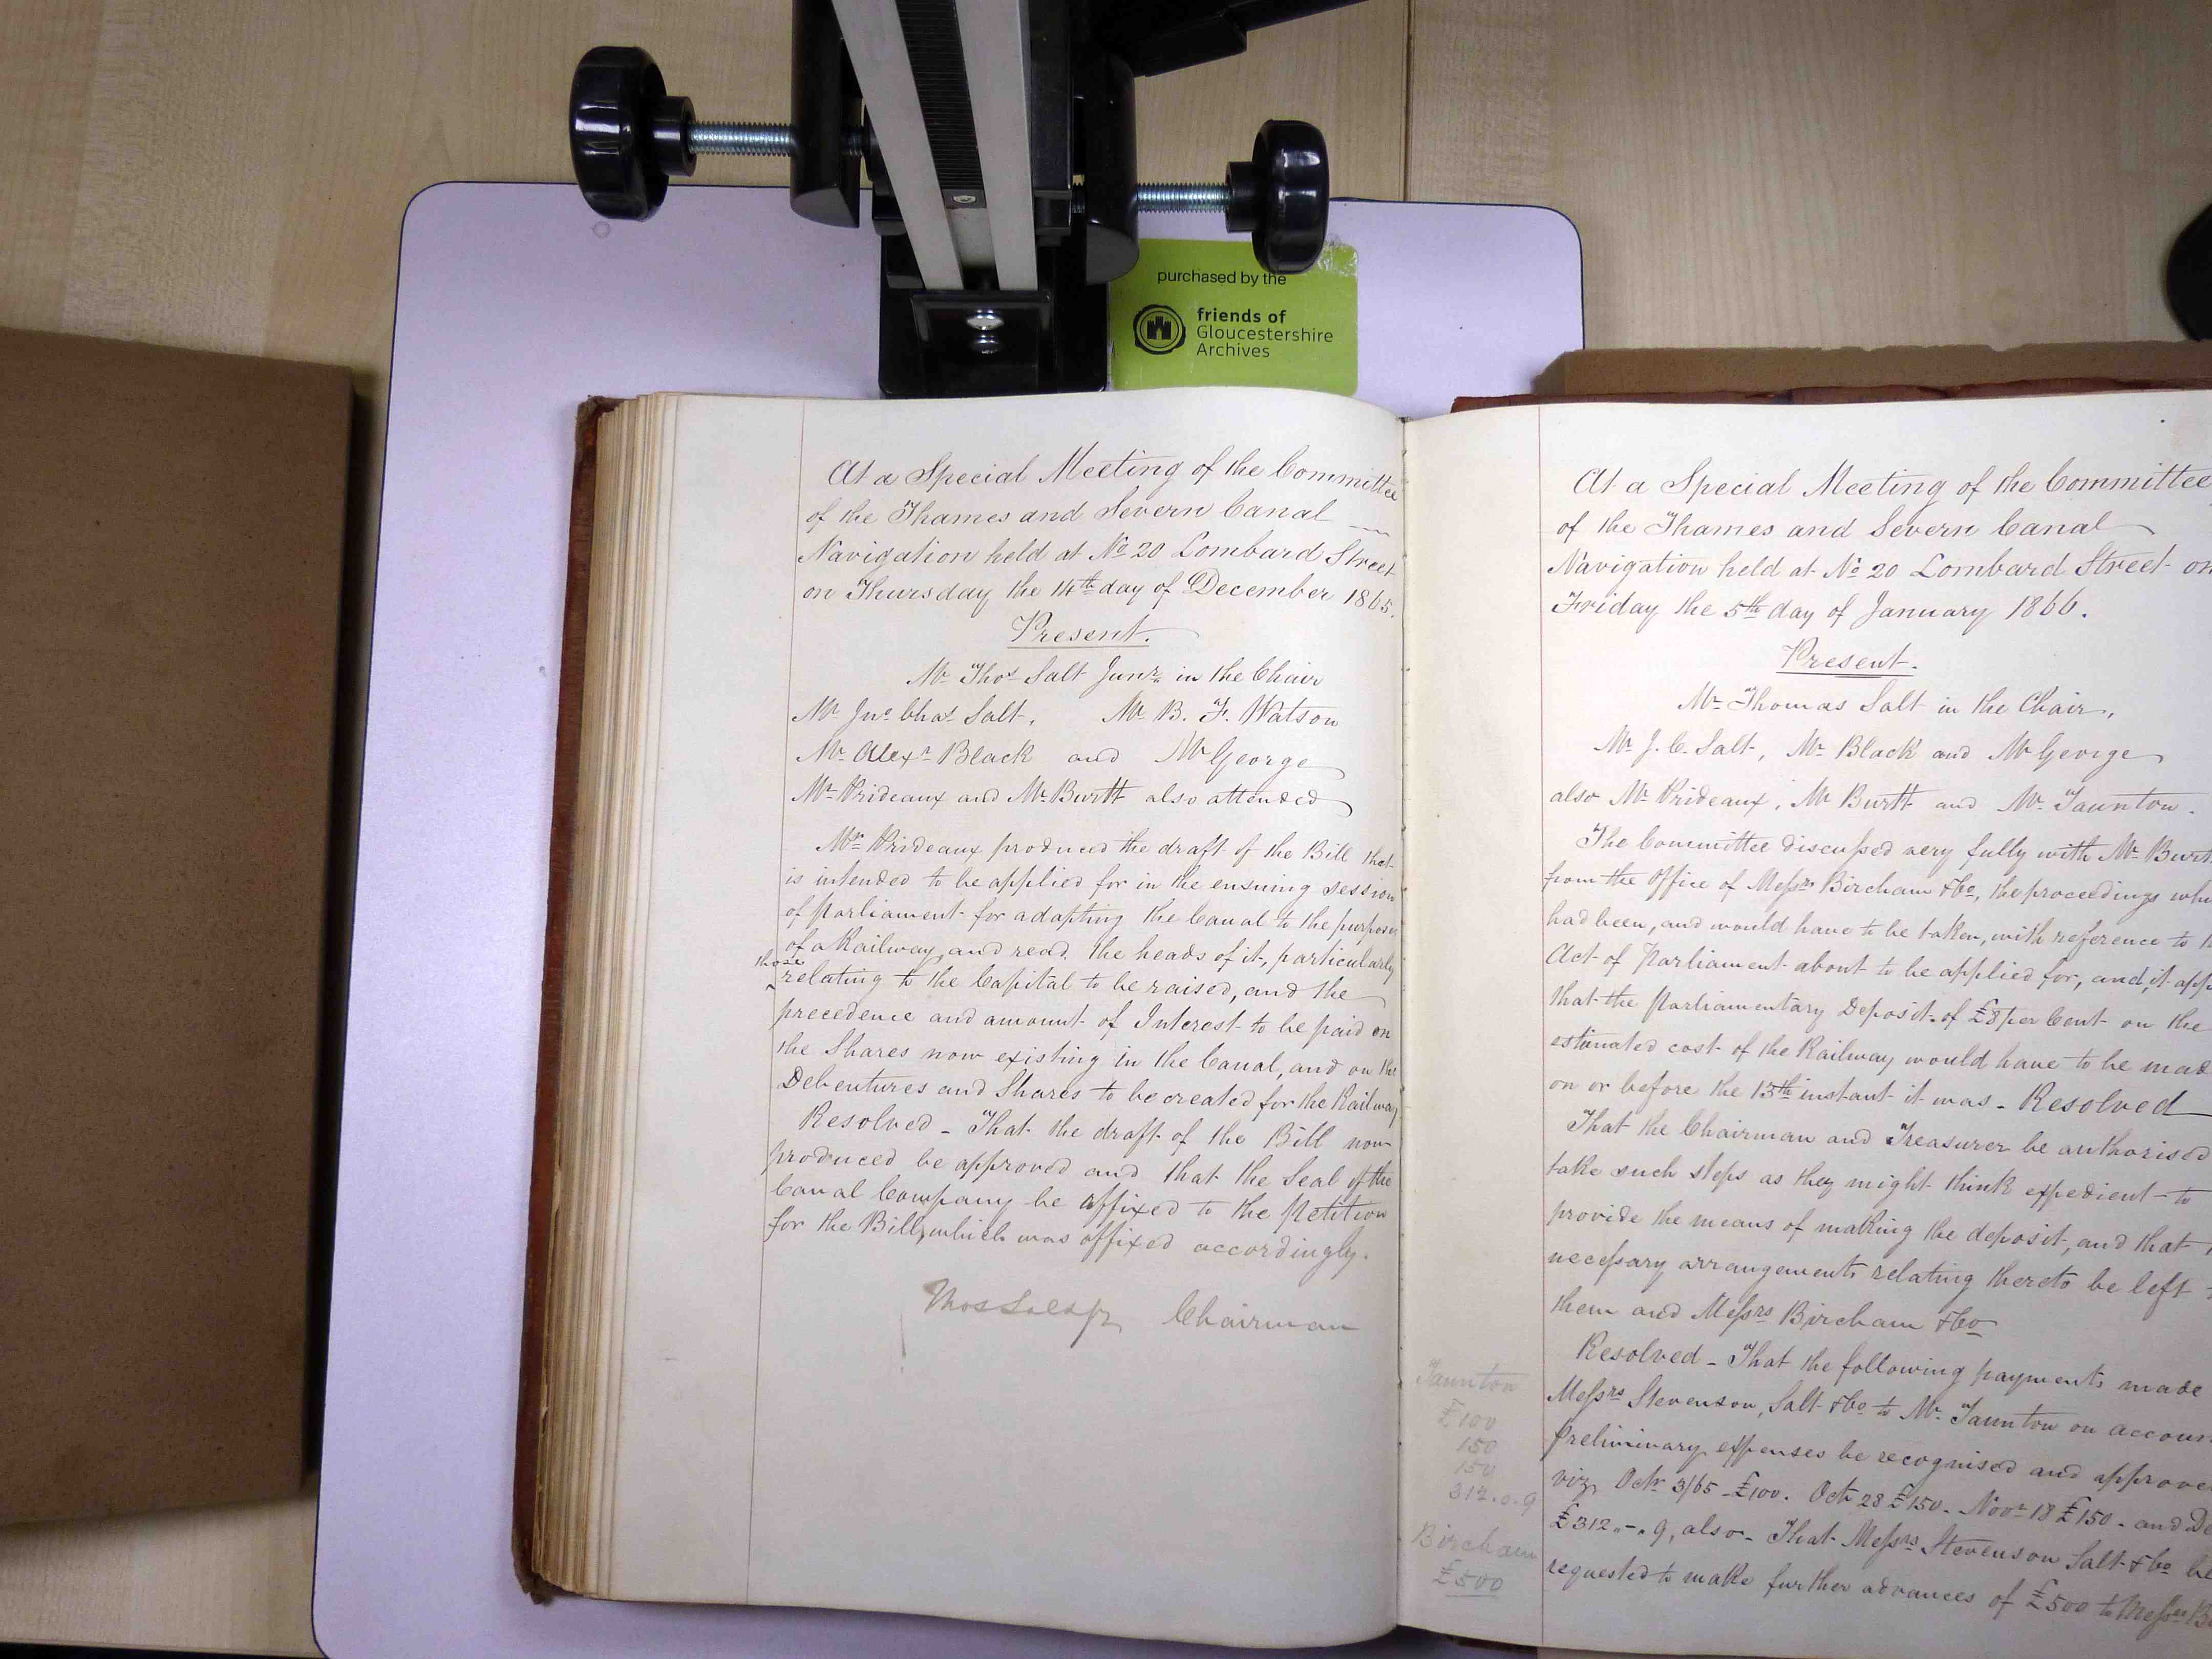 purchased by the
friends of
Gloucestershire
Archives
At a Special Meeting of the Committee
of the Thames and Severn Canal
Navigation held at No 20 Lombard Street
on Thursday the 14th day of December 1865.
Present.
Mr Thos Salt Junr in the Chair
Mr Jno Chas Salt, Mr B. F. Watson
Mr Alexr Black and Mr George
Mr Prideaux and Mr Burtt also attended
Mr Prideaux produced the draft of the Bill that
is intended to be applied for in the ensuing session
of Parliament for adapting the Canal to the purposes
of a Railway, and read the heads of it, particularly
those
relating to the Capital to be raised, and the
precedence and amount of Interest to be paid on
the Shares now existing in the Canal, and on the
Debentures and Shares to be created for the Railway
Resolved - That the draft of the Bill now
produced be approved and that the Seal of the
Canal Company be affixed to the Petition
for the Bill, which was affixed accordingly.
Thos Salt Jr Chairman
Taunton
£100
150
150
312.0.9
Bircham
£500
At a Special Meeting of the Committee
of the Thames and Severn Canal
Navigation held at No 20 Lombard Street on
Friday the 5th day of January 1866.
Present.
Mr Thomas Salt in the Chair,
Mr J. C. Salt, Mr Black and Mr George
also Mr Prideaux, Mr Burtt and Mr Taunton.
The Committee discussed very fully with Mr Burt
from the Office of Messrs Bircham & Co, the proceedings whi
had been, and would have to be taken, with reference to
Act of Parliament about to be applied for, and, it app
that the Parliamentary Deposit of £8 per Cent on the
estimated cost of the Railway would have to be mad
on or before the 13th instant it was - Resolved
That the Chairman and Treasurer be authorised
take such steps as they might think expedient to
provide the means of making the deposit, and that
necessary arrangements relating thereto be left
them and Messrs Bircham & Co
Resolved - That the following payments made
Messrs Stevenson, Salt & Co to Mr Taunton on accoun
preliminary expenses be recognised and approve
viz, Octr 3/65 - £100. Oct 28 £150. Novr 18 £150 - and De
£312.,-,. 9, also - That Messrs Stevenson Salt & Co be
requested to make further advances of £500 to Messrs B